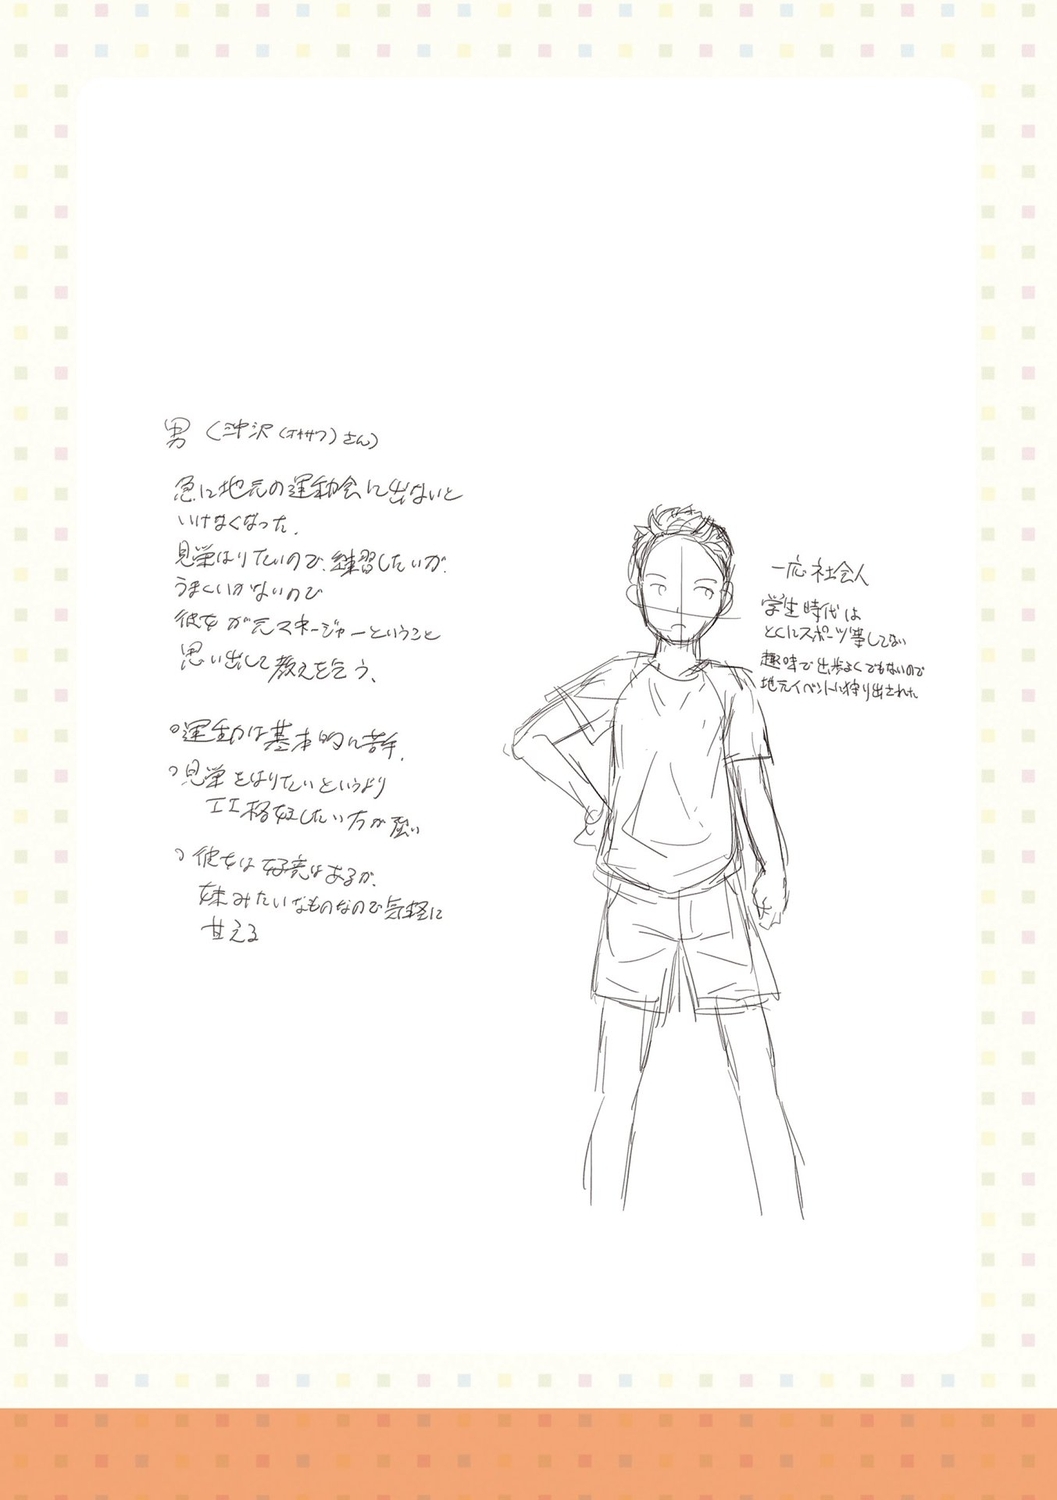 男(沖沢(オキサワ)さん)
急に地元の運動会に出ないと
いけなくなった.
見栄はりたいので、練習したいが.
うまくいかないので
彼女が元マネージャーということ
思い出して教えを乞う、
○運動は基本的に苦手.
○見栄をはりたいというより
エエ格好したい方が強い
○彼女は好意はあるが.
妹みたいなものなので気軽に
甘える
一応社会人
学生時代は
とくにスポーツ等してない
趣味で出歩よくでもないので
地元イベントに狩り出された